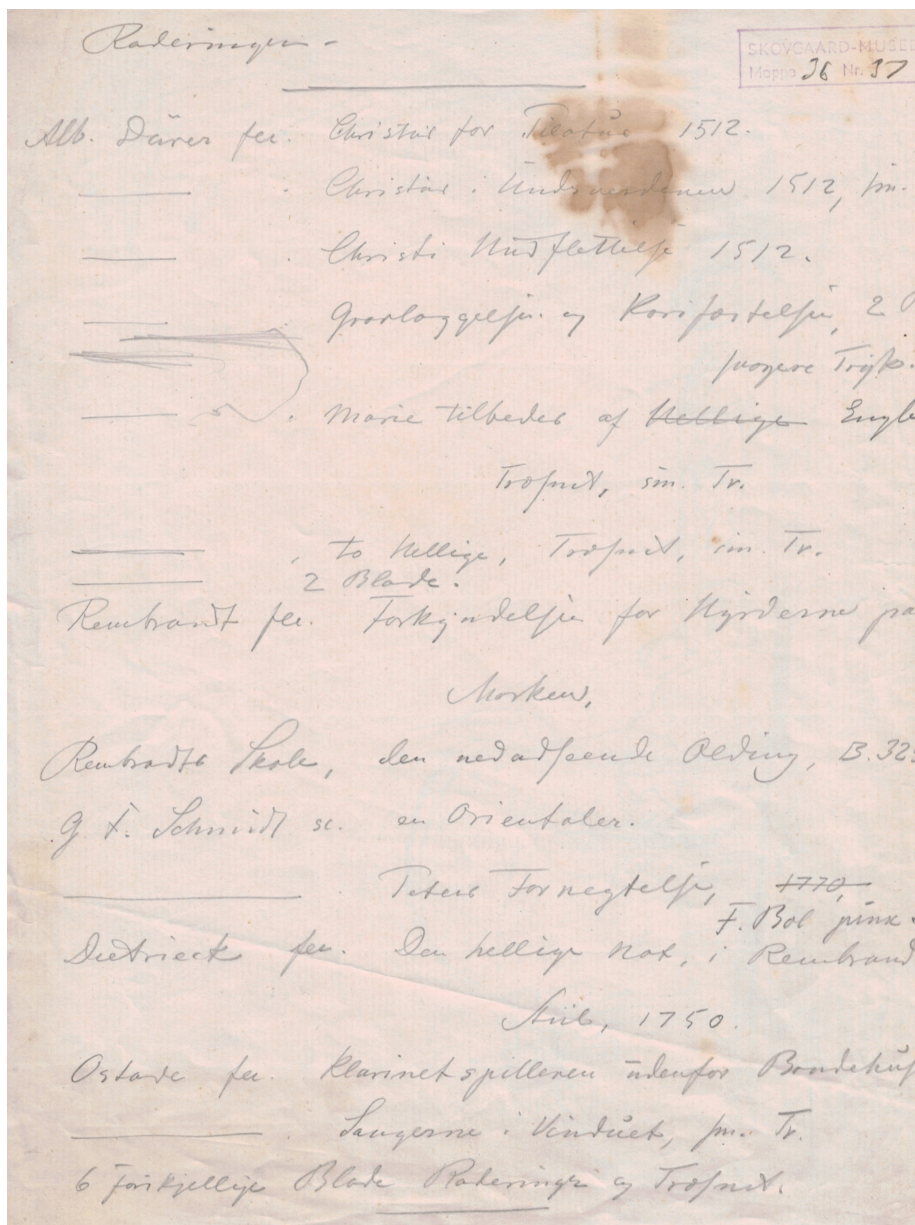 Raderinger -
SKOVGAARD-MUSEE
Mappe 36 Nr. 37
Alb. Dürer fec. Christus for Pilatus 1512.
Christus i Underverdenen 1512, sm.
Christi Hudflettelse 1512.
Gravlæggelsen og Korsfæstelsen, 2
svagere Tryk.
Marie tilbedes af Hellige Engle
Træsnit, sm. Tr.
to Hellige, Træsnit, sm. Tr.
2 Blade.
Rembrandt fec. Forkyndelsen for Hyrderne paa
Marken,
Rembradts Skole, den nedadseende Olding, B. 32
G. F. Schmidt sc. en Orientaler.
Peters Fornegtelse, 1770,
F. Bol pinx.
Dietrieck fec. Den hellige Nat, i Rembrand
Stiil, 1750.
Ostade fec. Klarinetspilleren udenfor Bondehus
Sangerne i Vinduet, sm. Tr.
6 forskjellige Blade Raderinger og Træsnit.